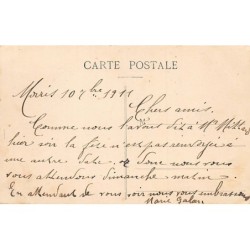 CARTE POSTALE
10 7bre 1911
Chers amis.
Comme nous l'avons dit à Mr
hier soir la fête n'est pas renvoyée à
une autre date donc nous vous
attendons dimanche matin
En attendant de vous voir nous vous embrassons
Marie